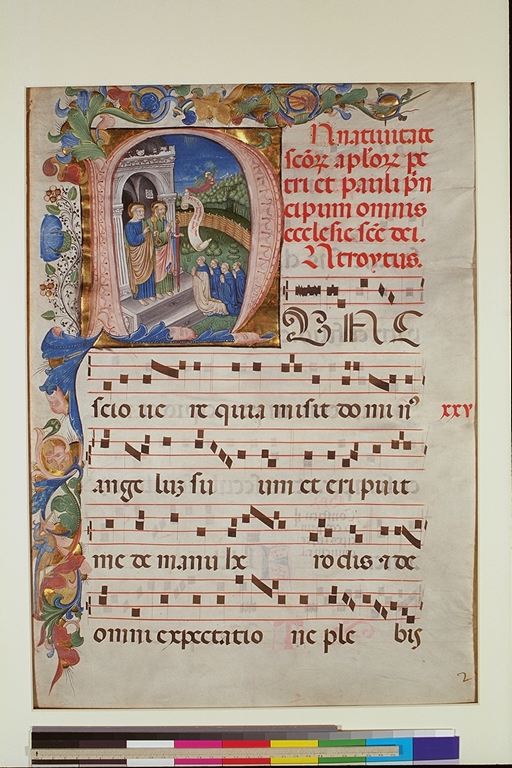 In natiuitate
scōꝝ aploꝝ pe
tri et pauli pͥn
cipum omnis
ecclesie scē dei.
Introytus.
NUNC
scio ue re quia misit domin⁹
xxv
ange luꝫ su um et eripuit
me de manu he rodis ⁊ de
omni expectatio ne ple bis
2